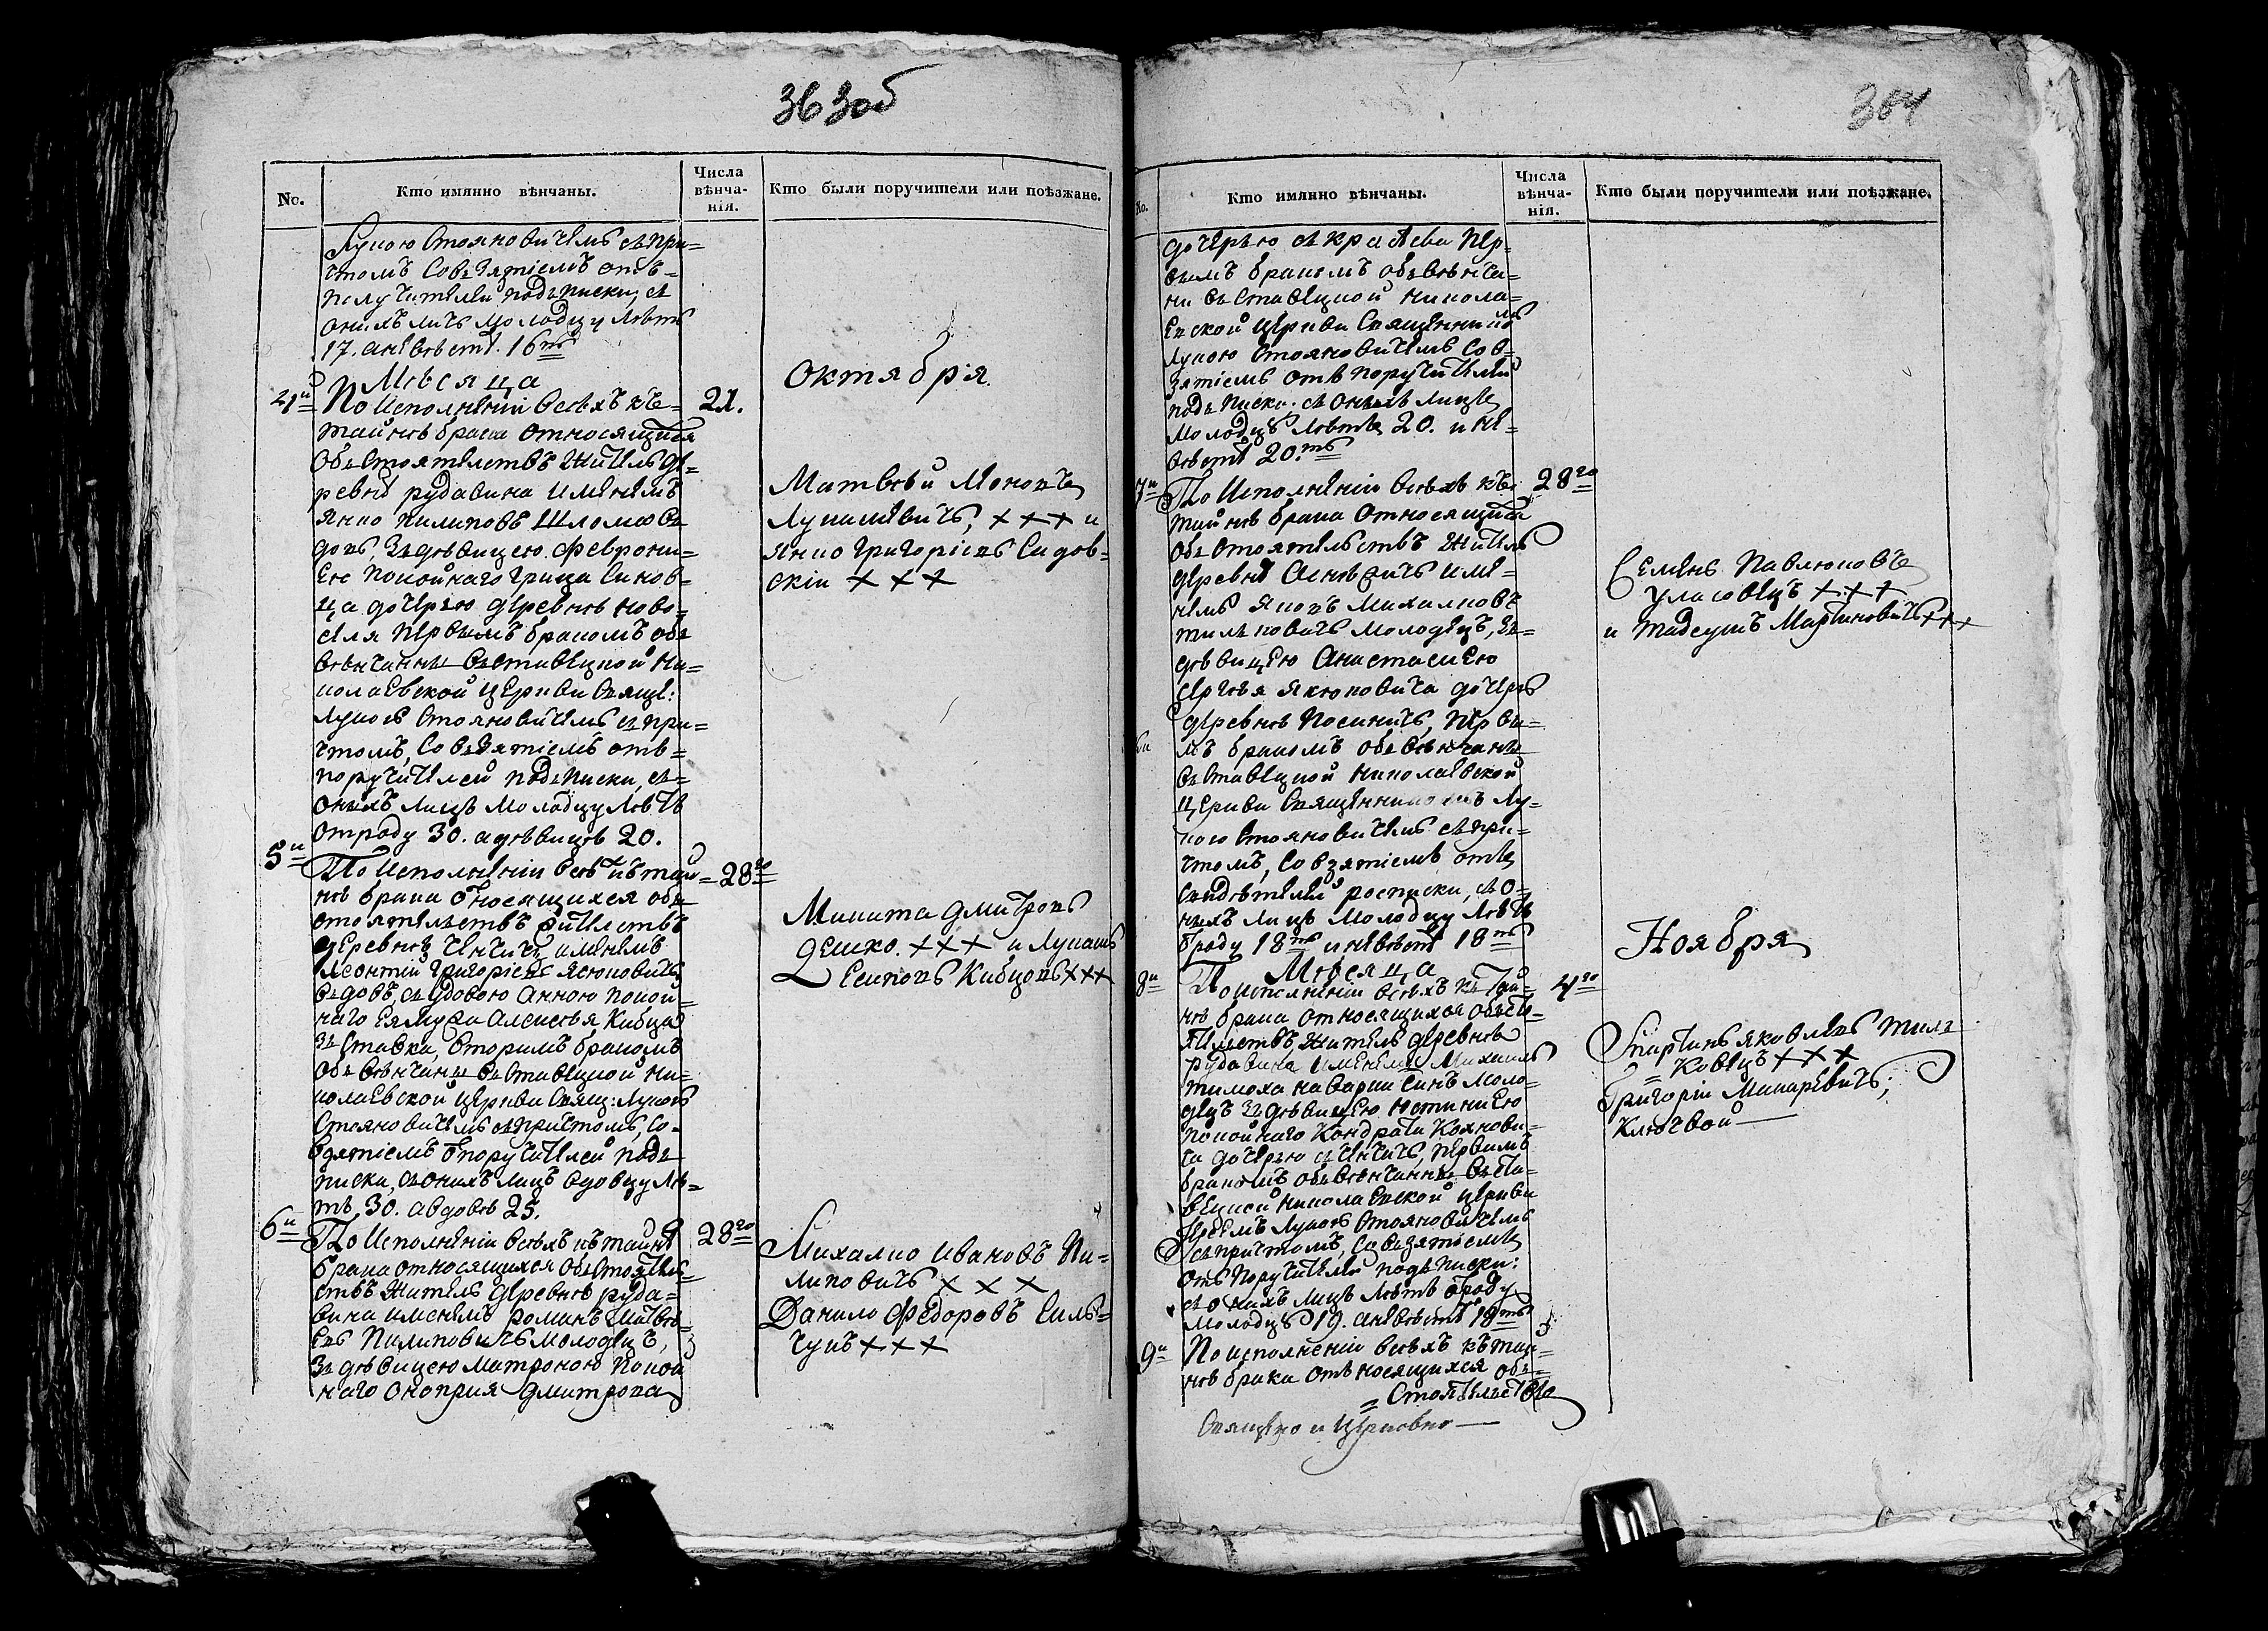 363об
No.
Кто имянно вѣнчаны.
Числа вѣнча-
нія.
Кто были поручители или поѣзжане.
Лукою Стояновичемъ съ при=
чтомъ Совзятіемъ отъ=
подъписки, съ
онихъ лицъ молодцу Лѣтъ
17. а невѣсте. 16тъ
Мѣсяца
Октября
4й
По Исполненіи всѣхъ къ=
21.
тайнѣ брака Относящихся
Объстоятелствъ Жителъ де=
ревнѣ рудавина именемъ
Янко пилиповъ
зъдѣвицею феврони=
Ею покойнаго грица
ца дочерю деревнѣ ново=
селя первымъ бракомъ объ
вѣнчаны въставецкой Ни=
колаЕвской церкви свяще:
Лукою Стояновичемъ съ при=
чтомъ, Совзятіемъ отъ=
поручителей подъписки, съ=
онихъ лицъ молодцу Лѣтъ
отроду 30. а дѣвицѣ 20.
Матвѣй
+++ и
Янко григоріевъ Сидов=
скіи +++
5й
По Исполненіи всѣ къ тай=
28го
нѣ брака Относящихся объ
стоятелствъ жителствъ
деревнѣ именемъ
Леонтій григоріевъ
вдовъ, съ удовою Анною покой=
наго Ея мужа Алексѣя Кибца
зъставка, вторимъ бракомъ
Объвѣнчаны въставецкой Ни=
колаЕвской церкви свящ: Лукою
Стояновичемъ съпричтомъ, Со-
взятіемъ поручителей подъ
писки, съонихъ лицъ вдовцу Лѣ=
тъ 30. а вдовѣ 25.
Микита дмитровъ
дешко. +++ и Лукашъ
Есиповъ Кибцовъ +++
6й
По Исполненіи всѣхъ къ тайнѣ
28го
брака относящихся объстоятел=
ствъ Жителъ деревнѣ руда=
вина именемъ романъ Матвѣ=
Евъ Пилиповичъ молодецъ,
зъ дѣвицею матроною покой
наго Оноприя дмитрова
Михалко ивановъ Пи=
липовичъ +++
Данило Федоровъ Силь=
чукъ +++
364
No.
Кто имянно вѣнчаны.
Числа
вѣнча-
нія.
Кто были поручители или поѣзжане.
дочерью пер=
вымъ бракомъ объвѣнча=
ни въ ставецкой Никола=
Евской церкви священникомъ
Лукою Стояновичемъ Сов=
зятіемъ отъ поручителей
подъписки. съ онихъ лицъ
молодцу лѣтъ 20. и не=
вѣсте 20.тъ
7й
По Исполненіи всѣхъ къ
28го
тайнѣ брака Относящихся
объстоятельствъ Жителъ
деревнѣ име=
немъ Яковъ Михалковъ
молодецъ, зъ=
дѣвицею Анастасиею
дочерь
деревнѣ первы=
мъ бракомъ объвѣнчаны
въставецкой Николаевской
церкви священникомъ Лу=
кою Стояновичемъ съпри=
чтомъ, Совзятіемъ отъ
свидѣтелей росписки, съ о=
ныхъ лицъ молодцу лѣтъ
отроду 18тъ и невѣсте 18тъ
Семенъ Павлюковъ
уласовецъ +++
и тадеушъ Мартиновичъ +++
Мѣсяца
Ноября
8й
По исполненіи всѣхъ къ тай=
4го
нѣ брака относящихся объсто=
телствъ, жителъ деревнѣ
рудавина именемъ Михаилъ
сынъ моло=
децъ зъ дѣвицею Устиниею
покойнаго Кондрата
дочерею первымъ
бракомъ объвѣнчаны въста=
вецкой НиколаЕвской церкви
Иереемъ Лукою Стояновичемъ
съпричтомъ, Совзятіемъ
отъ поручителей подъписки:
съ онихъ лицъ лѣтъ отроду
молодцу 19. а невѣсте 18тъ
Мартинъ яковлевъ
+++
Григоріи Макаревичъ;
9й
По исполненіи всѣхъ къ тай=
нѣ брака отъносящихся объ=
=стоятелство
Священо и Церковно